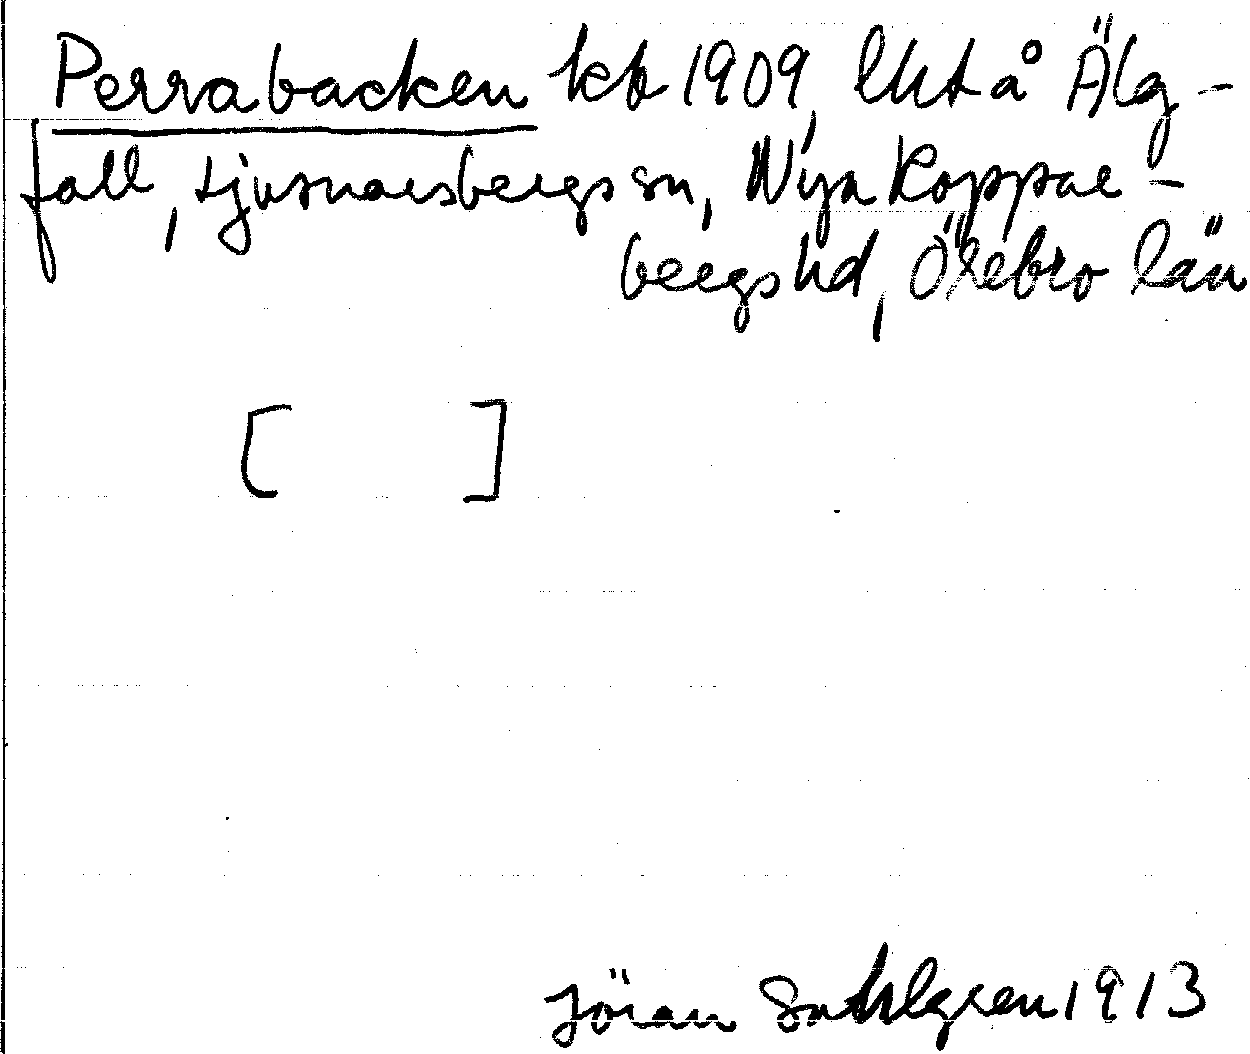 Perrabacken kb 1909, lht å Älg-
fall, Ljusnarsbergs sn, Nya Koppar-
bergs hd, Örebro län
[ ]
Jöran Sahlgren 1913